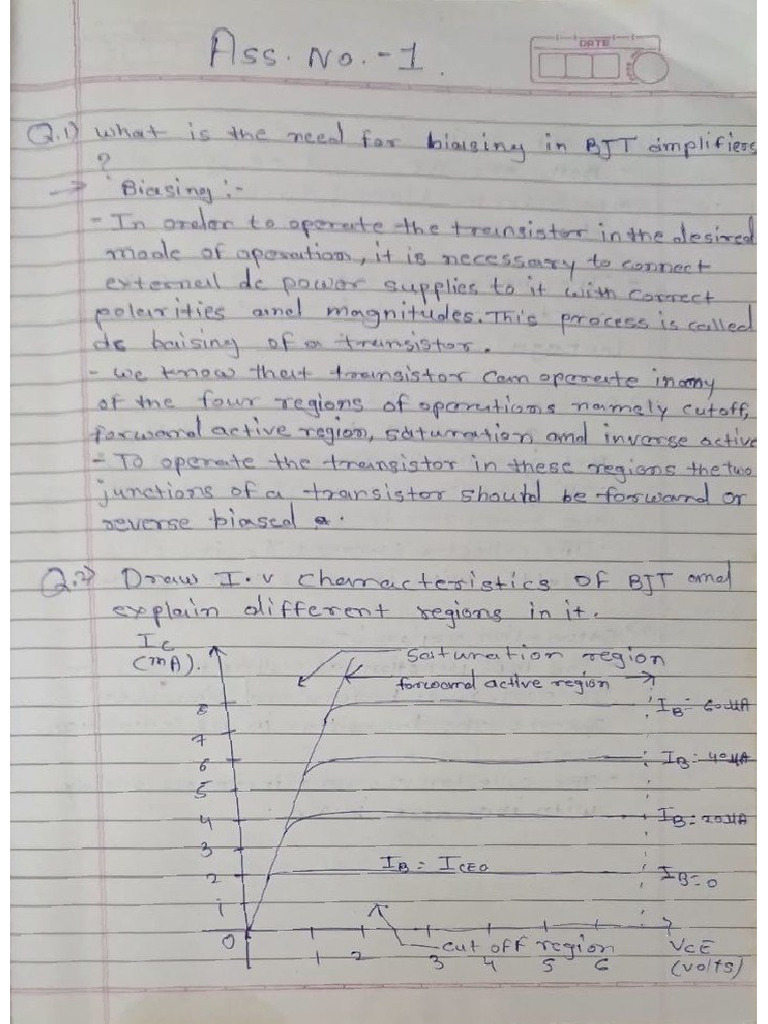 Ass. No. - 1
DATE
Q.1) What is the need for biasing in BJT amplifiers
?
→ Biasing :-
- In order to operate the transistor in the desired
mode of operation, it is necessary to connect
external dc power supplies to it with correct
polarities and magnitudes. This process is called
dc baising of a transistor.
- We know that transistor can operate in any
of the four regions of operations namely cutoff,
forward active region, saturation and inverse active
- To operate the transistor in these regions the two
junctions of a transistor should be forward or
reverse biased.
Q.2) Draw I.V characteristics OF BJT and
explain different regions in it.
Ic
(mA).
saturation region
forward active region
8
IB = 60 μA
7
6
IB = 40 μA
5
4
IB = 20 μA
3
2
IB = ICEO
IB = 0
1
0
cut off region
VCE
1 2 3 4 5 6
(volts)